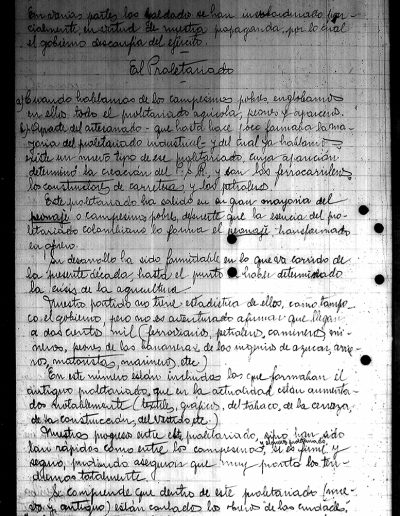 En varias partes los soldados se han insubordinado par-
cialmente, en virtud de nuestra propaganda, por lo cual
el gobierno desconfía del ejército.
El Proletariado
a) Cuando hablamos de los campesinos pobres, englobamos
en ellos todo el proletariado agrícola, peones y aparceros.
b) Aparte del artesanado - que hasta hace poco formaba la ma-
yoría del proletariado industrial - y del cual ya hablamos
existe un nuevo tipo de ese proletariado, cuya aparición
determinó la creación del P.S.R. y son los ferrocarrileros,
los constructores de carreteras y los petroleros.
Este proletariado ha salido en su gran mayoría del
peonaje o campesino pobre, de suerte que la esencia del pro-
letariado colombiano lo forma el peonaje transformado
en obrero.
Su desarrollo ha sido formidable en lo que va corrido de
la presente década, hasta el punto de haber determinado
la crisis de la agricultura
Nuestro partido no tiene estadística de ellos, como tampo-
co el gobierno, pero no es aventurado afirmar que llegan
a doscientos mil (ferroviarios, petroleros, camineros, mi-
neros, peones de las bananeras, de los ingenios de azúcar, arrie-
ros, matoristas, marineros, etc)
En este número están incluidos los que formaban el
antiguo proletariado, que en la actualidad están aumenta-
dos notablemente (textile, gráficos, del tabaco, de la cerveza,
de la construcción, del vestido etc)
Nuestros progresos entre este proletariado, sino han sido
tan rápidos como entre los campesinos, si es firme y
seguro, pudiendo asegurar que muy pronto los ten-
dremos totalmente.
Se comprende que dentro de este proletariado (nue-
vo y antiguo) están contados los obreros de las ciudades,